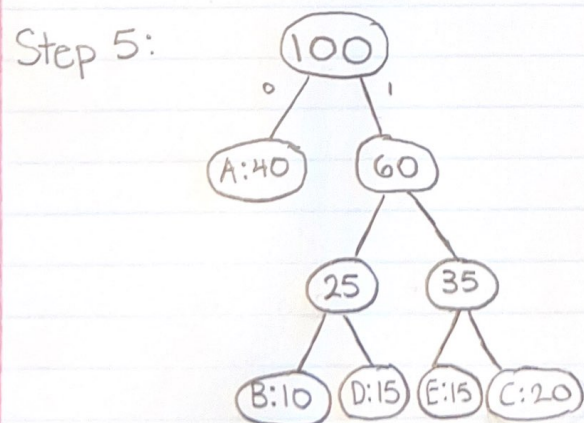 Step 5:
100
0 1
A:40 60
25 35
B:10 D:15 E:15 C:20